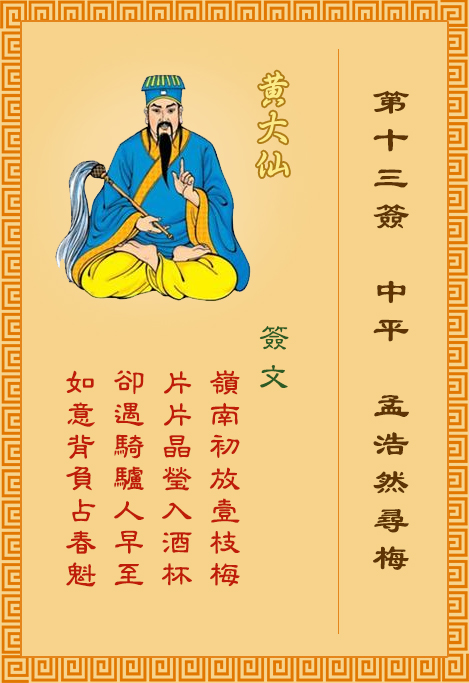 第十三簽 中平 孟浩然尋梅
黄大仙
簽文
嶺南初放壹枝梅
片片晶瑩入酒杯
卻遇騎驢人早至
如意背負占春魁